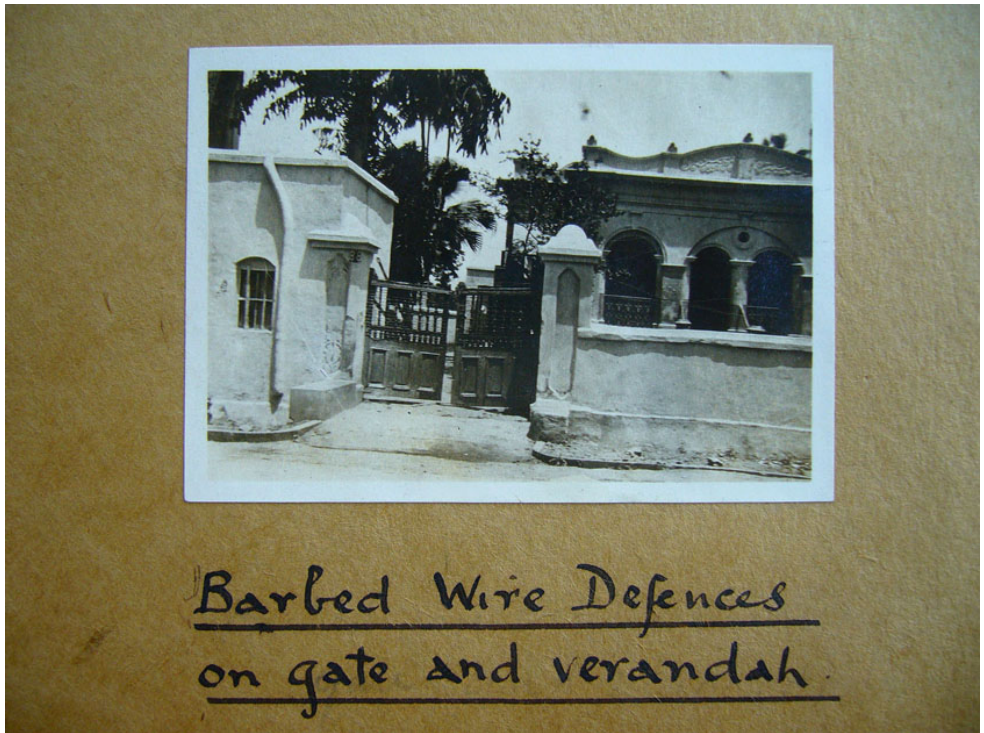 Barbed Wire Defences
on gate and verandah.